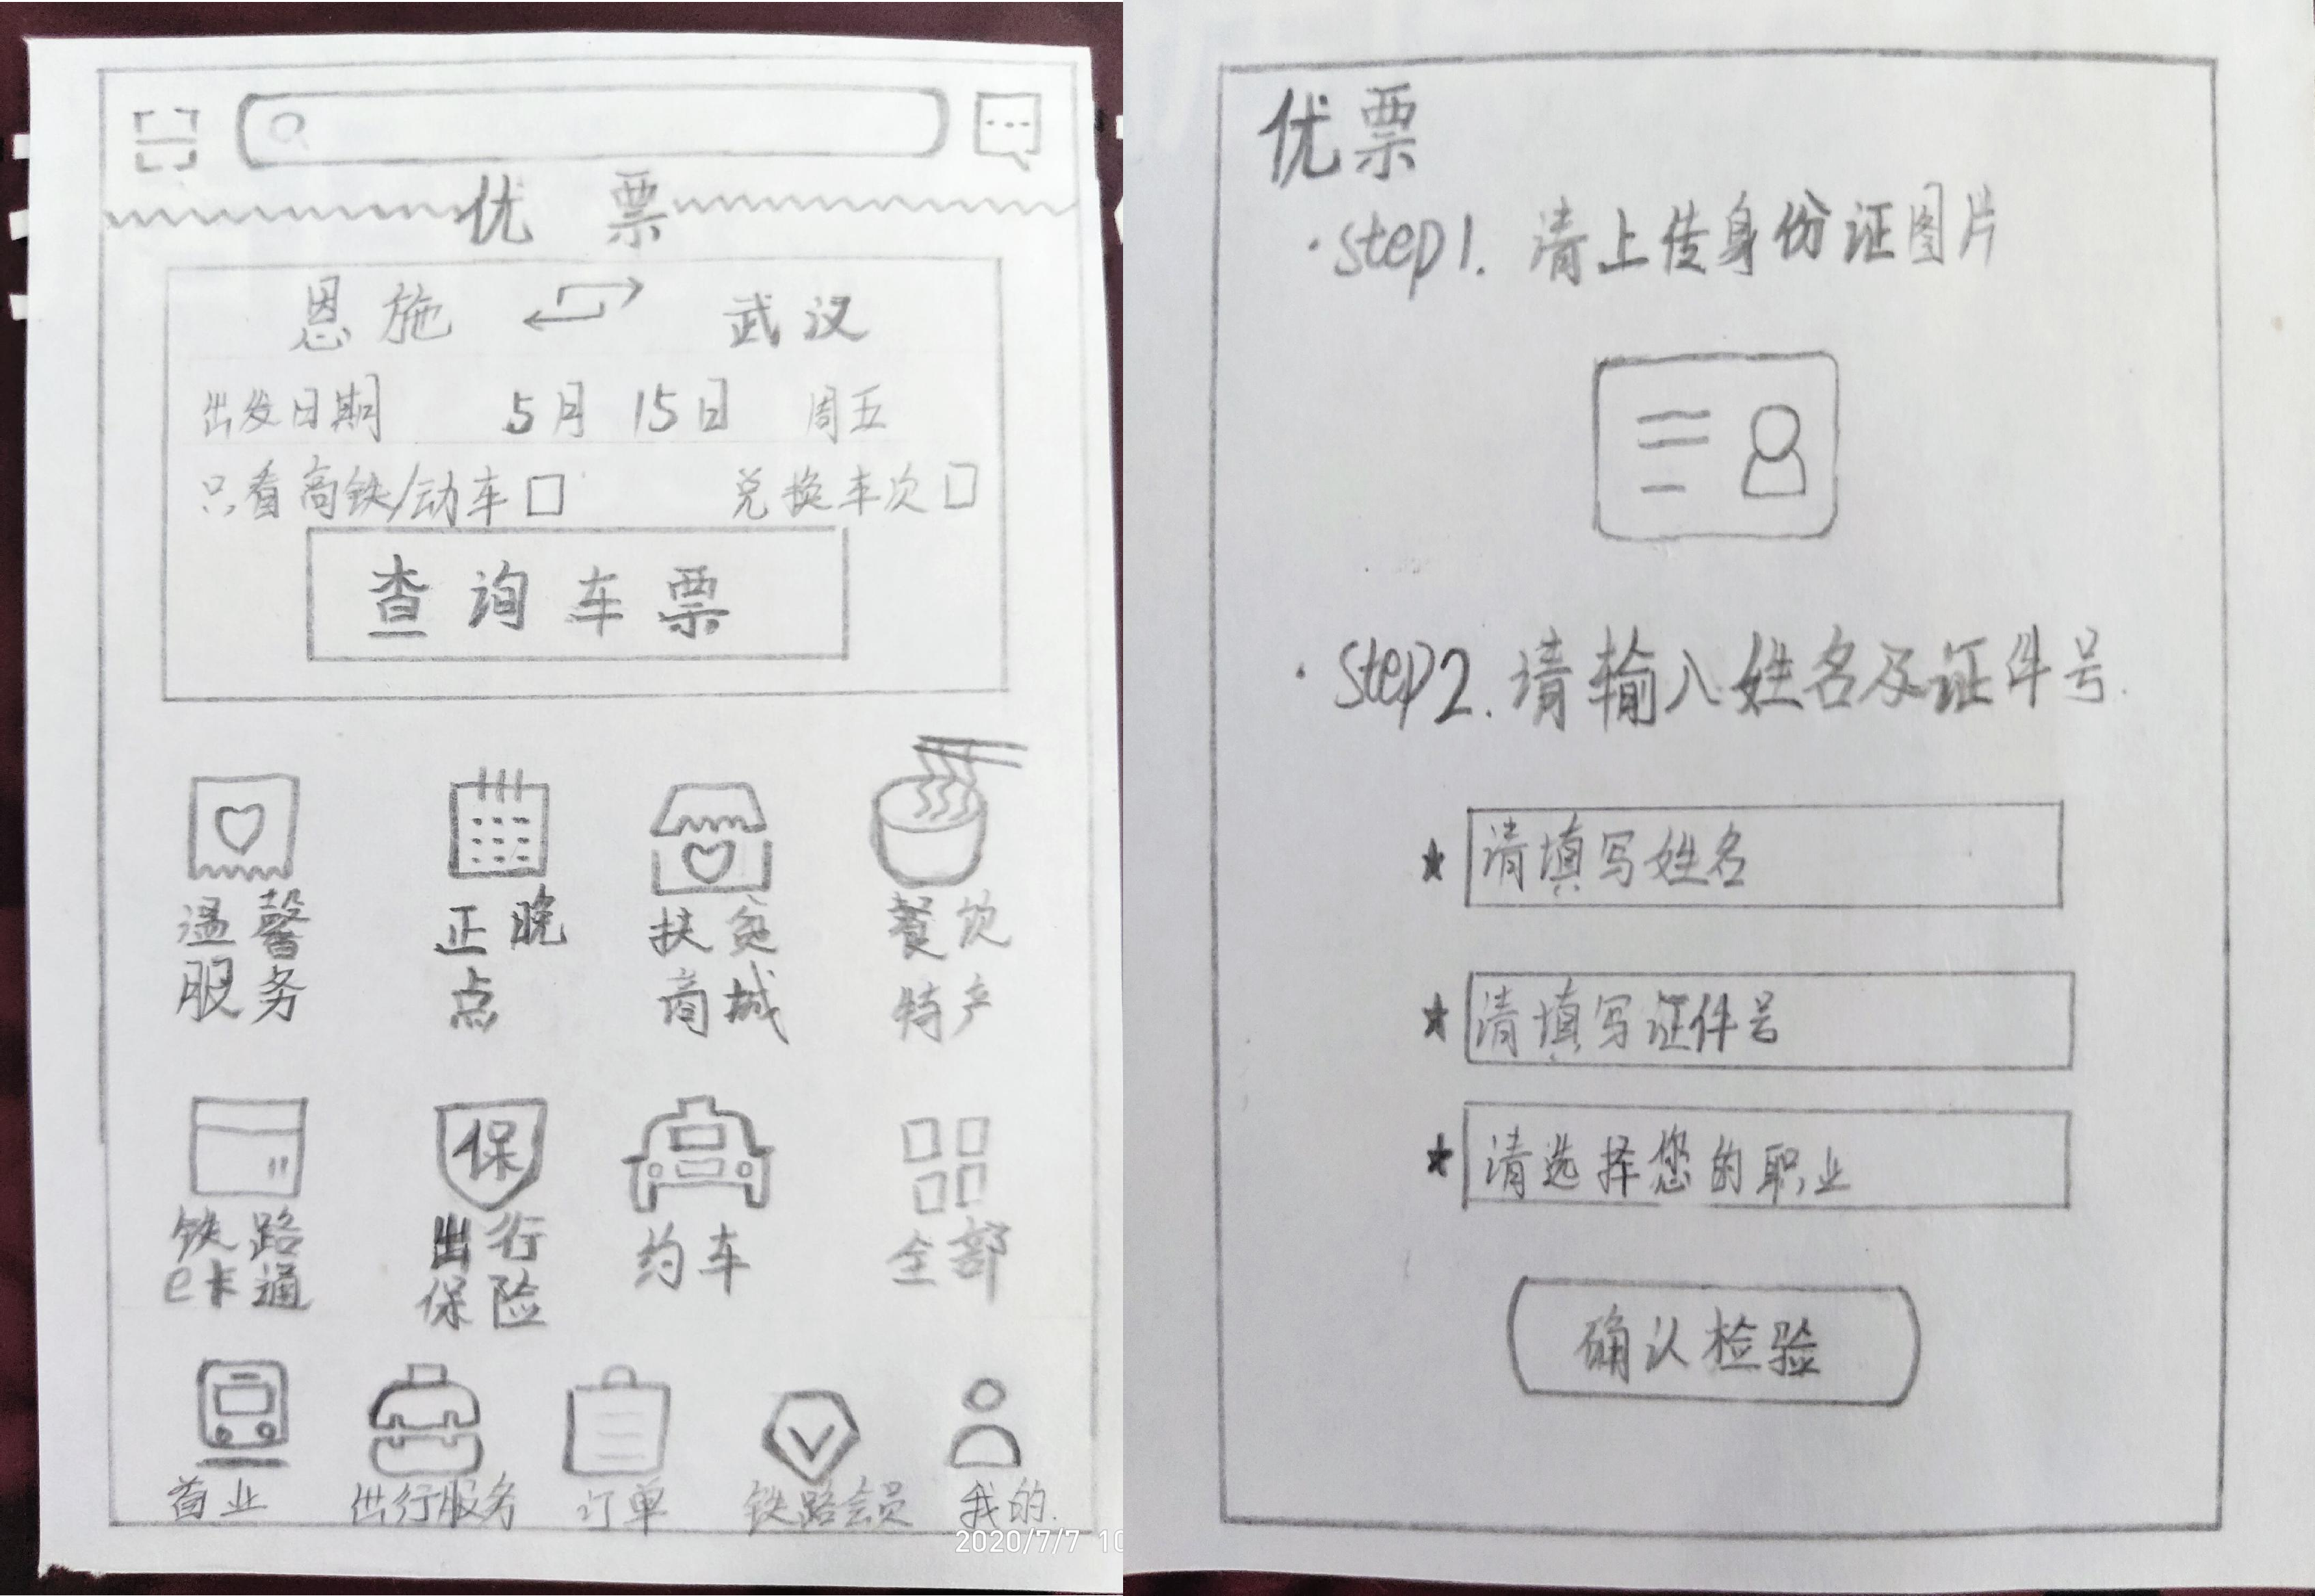 优票
恩施 武汉
出发日期 5月 15日 周五
只看高铁/动车 兑换车次
查询车票
温馨 正晚 扶贫 餐饮
服务 点 商城 特产
保
铁路 出行 约车 全部
e卡通 保险
首业 出行服务 订单 铁路会员 我的.
2020/7/7 10
优票
·step1. 请上传身份证图片
·step2. 请输入姓名及证件号.
★ 请填写姓名
★ 请填写证件号
★ 请选择您的职业
确认检验